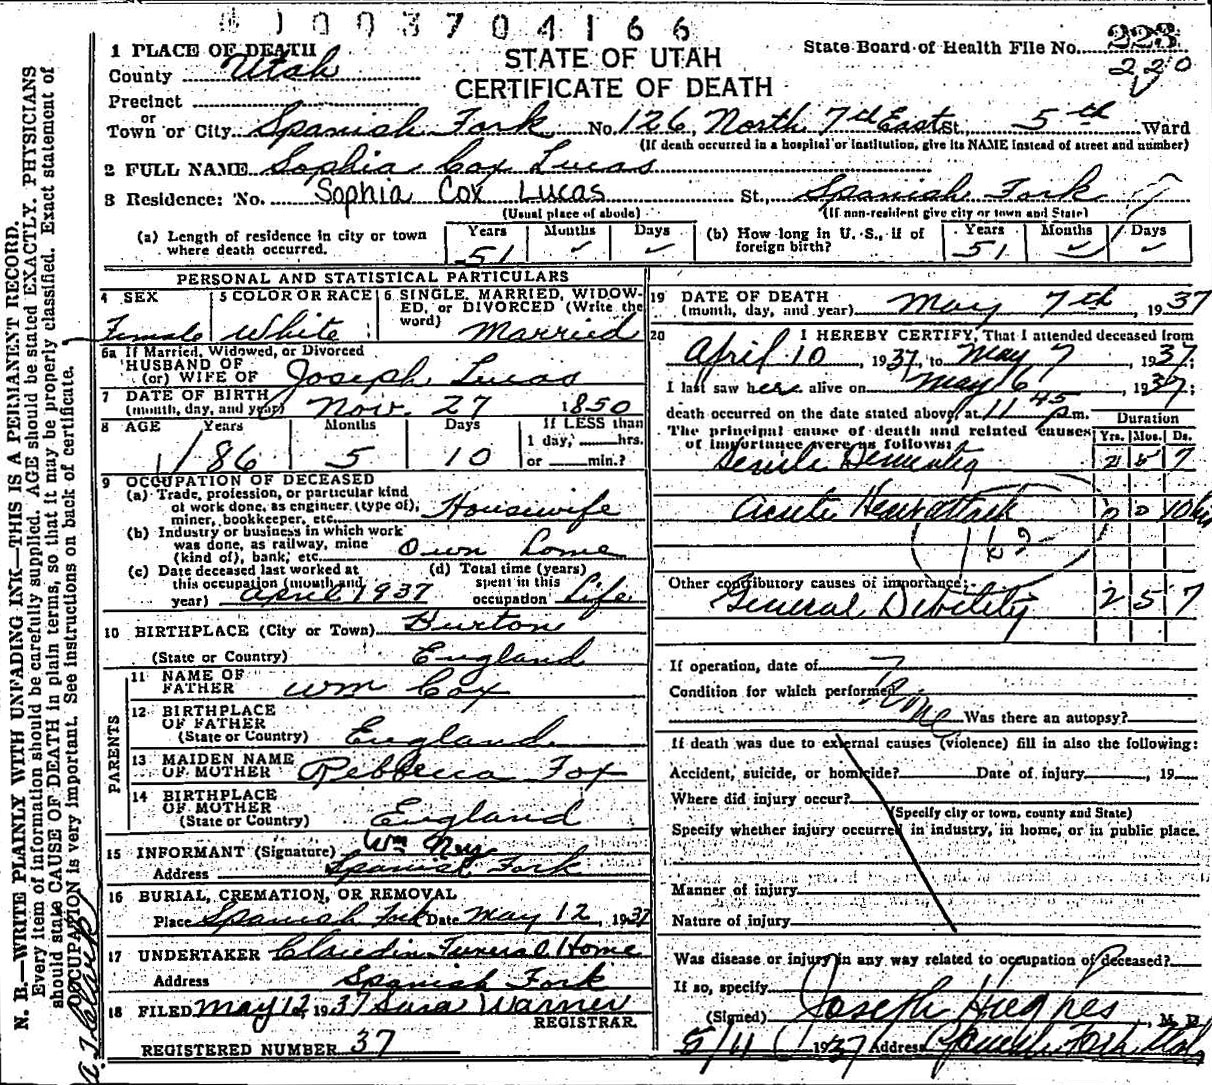 1003704166
STATE OF UTAH
CERTIFICATE OF DEATH
State Board of Health File No. 223
220
1 PLACE OF DEATH
County Utah
Precinct
or
Town or City Spanish Fork No. 126, North 7th East St., 5th Ward
(If death occurred in a hospital or institution, give its NAME instead of street and number)
2 FULL NAME Sophia Cox Lucas
3 Residence: No. Sophia Cox Lucas St., Spanish Fork
(Usual place of abode) (If non-resident give city or town and State)
(a) Length of residence in city or town where death occurred. Years 51 Months Days
(b) How long in U. S., if of foreign birth? Years 51 Months Days
PERSONAL AND STATISTICAL PARTICULARS
4 SEX Female
5 COLOR OR RACE White
6 SINGLE, MARRIED, WIDOWED, or DIVORCED (Write the word) Married
6a If Married, Widowed, or Divorced
HUSBAND OF
(or) WIFE OF Joseph Lucas
7 DATE OF BIRTH
(month, day, and year) Nov. 27 1850
8 AGE Years 86 Months 5 Days 10
If LESS than
1 day, hrs.
or min.?
9 OCCUPATION OF DECEASED
(a) Trade, profession, or particular kind of work done, as engineer (type of), miner, bookkeeper, etc. Housewife
(b) Industry or business in which work was done, as railway, mine (kind of), bank, etc. Own home
(c) Date deceased last worked at this occupation (month and year) April 1937
(d) Total time (years) spent in this occupation Life
10 BIRTHPLACE (City or Town) Burton
(State or Country) England
PARENTS
11 NAME OF FATHER Wm Cox
12 BIRTHPLACE OF FATHER
(State or Country) England
13 MAIDEN NAME OF MOTHER Rebbecca Fox
14 BIRTHPLACE OF MOTHER
(State or Country) England
15 INFORMANT (Signature) Wm Nye
Address Spanish Fork
16 BURIAL, CREMATION, OR REMOVAL
Place Spanish Fork Date May 12, 1937
17 UNDERTAKER Claudin Funeral Home
Address Spanish Fork
18 FILED May 12, 1937 Sara Warner
REGISTRAR.
REGISTERED NUMBER 37
19 DATE OF DEATH
(month, day, and year) May 7th, 1937
20 I HEREBY CERTIFY, That I attended deceased from
April 10, 1937, to May 7, 1937;
I last saw her alive on May 6, 1937;
death occurred on the date stated above, at 11 45 p.m.
The principal cause of death and related causes of importance were as follows:
Duration
Yrs. Mos. Ds.
Senile Dementia 2 5 7
Acute Heart attack 0 0 10 hr
Other contributory causes of importance:
General Debility 2 5 7
If operation, date of
Condition for which performed None
Was there an autopsy?
If death was due to external causes (violence) fill in also the following:
Accident, suicide, or homicide? Date of injury, 19
Where did injury occur?
(Specify city or town, county and State)
Specify whether injury occurred in industry, in home, or in public place.
Manner of injury
Nature of injury
Was disease or injury in any way related to occupation of deceased?
If so, specify
(Signed) Joseph Hughes, M. D.
5/11 1937 Address Spanish Fork Utah
N. B.—WRITE PLAINLY WITH UNFADING INK—THIS IS A PERMANENT RECORD.
Every item of information should be carefully supplied. AGE should be stated EXACTLY. PHYSICIANS
should state CAUSE OF DEATH in plain terms, so that it may be properly classified. Exact statement of
OCCUPATION is very important. See instructions on back of certificate.